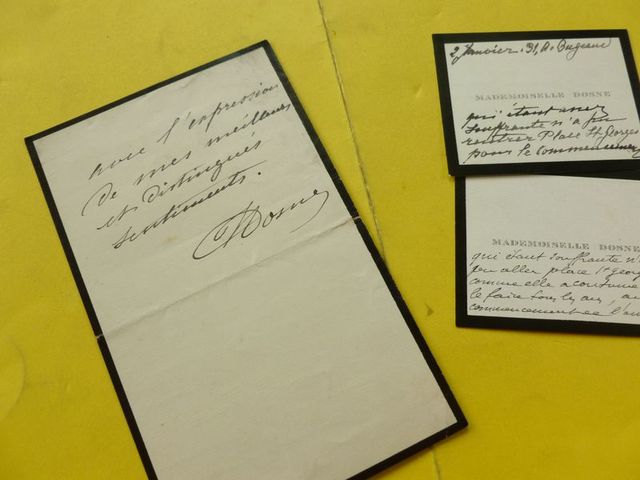 avec l'expression
de mes meilleurs
et distingués
sentiments.
Dosne
2 Janvier. 31, Av. Bugeaud
MADEMOISELLE DOSNE
qui étant assez
souffrante n'a pu
rentrer Place St Georges
pour le commencement
MADEMOISELLE DOSNE
qui étant souffrante n'a
pu aller place St Georg
comme elle a coutume
le faire tous les ans, au
commencement de l'an